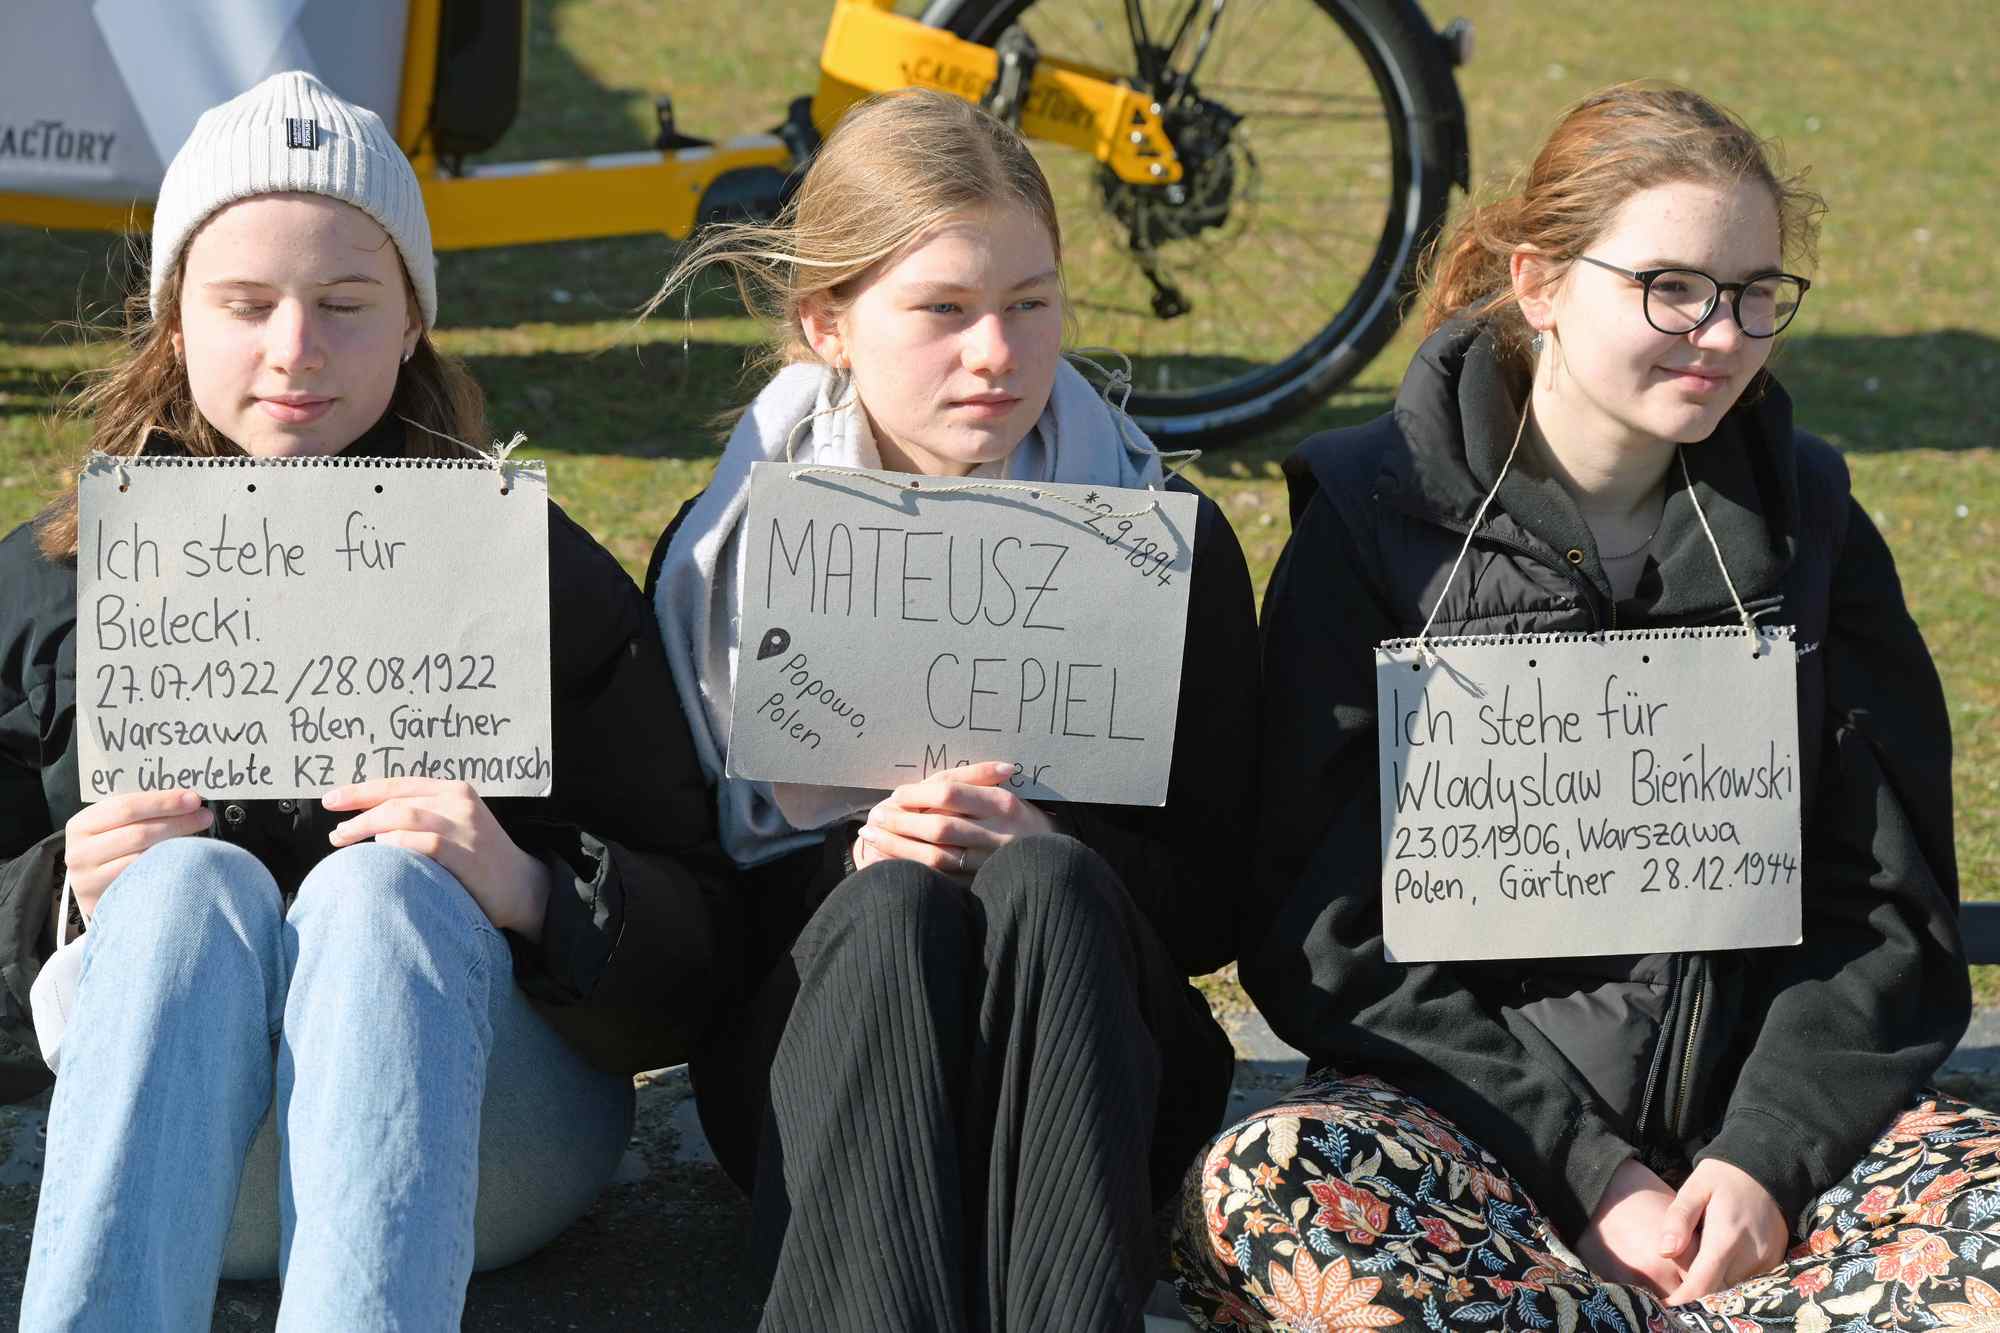 FACTORY
CARGO FACTORY
Ich stehe für
Bielecki.
27.07.1922/28.08.1922
Warszawa Polen, Gärtner
er überlebte KZ & Todesmarsch
*2.9.1894
MATEUSZ
CEPIEL
Popowo,
Polen
Ich stehe für
Wladyslaw Bieńkowski
23.03.1906, Warszawa
Polen, Gärtner 28.12.1944